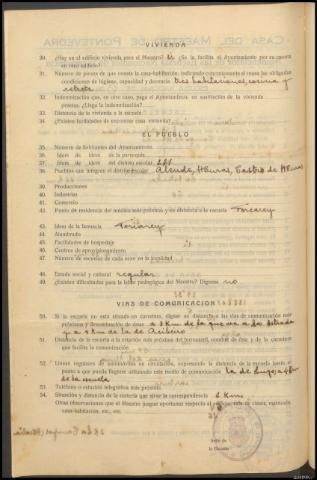 VIVIENDA
30. ¿Hay en el edificio vivienda para el Maestro? Sí ¿Se la facilita el Ayuntamiento por su cuenta
en otro edificio?
31. Número de piezas de que consta la casa-habitación, indicando concretamente si reune las obligadas
condiciones de higiene, capacidad y decencia tres habitaciones, cocina y
retrete
32. Indemnización que, en otro caso, paga el Ayuntamiento en sustitución de la vivienda
precisa. ¿Llega la indemnización?
33. Distancia de la vivienda a la escuela
34. ¿Existen facilidades de encontrar casa vivienda?
EL PUEBLO
35. Número de habitantes del Ayuntamiento
36. Idem de idem de la parroquia
37. Idem de idem del distrito escolar 266
38. Pueblos que integran el distrito escolar
39. Producciones
40. Industrias
41. Comercio
42. Punto de residencia del médico más próximo y su distancia a la escuela Forcarey
43. Idem de la farmacia Forcarey
44. Alumbrado
45. Facilidades de hospedaje
46. Centros de aprovisionamiento
47. Número de escuelas de cada sexo en la localidad
48. Estado social y cultural regular
49. ¿Existen dificultades para la labor pedagógica del Maestro? Díganse no
VIAS DE COMUNICACION
51. Si la escuela no está situada en carretera, dígase su distancia a las vías de comunicación más
próximas y denominación de éstas a 3 Km de la que va a La Estrada
y a 4 Km de la de
52. Distancia de la escuela a la estación más próxima del ferrocarril, conduct de ésta y de la carretera
que facilita la comunicación
52. Líneas regulares de automóviles en circulación, expresando la distancia de la escuela hasta el
punto a que pueda llegarse utilizando este medio de comunicación La de
de la escuela
53. Teléfono o estación telegráfica más próxima
54. Situación y distancia de la cartería que sirve la correspondencia 2 Kms
Otras observaciones que el Maestro juzgue oportunas respecto al edificio, sala de clases, material,
casa-habitación, etc., etc.
Sello de
la Escuela